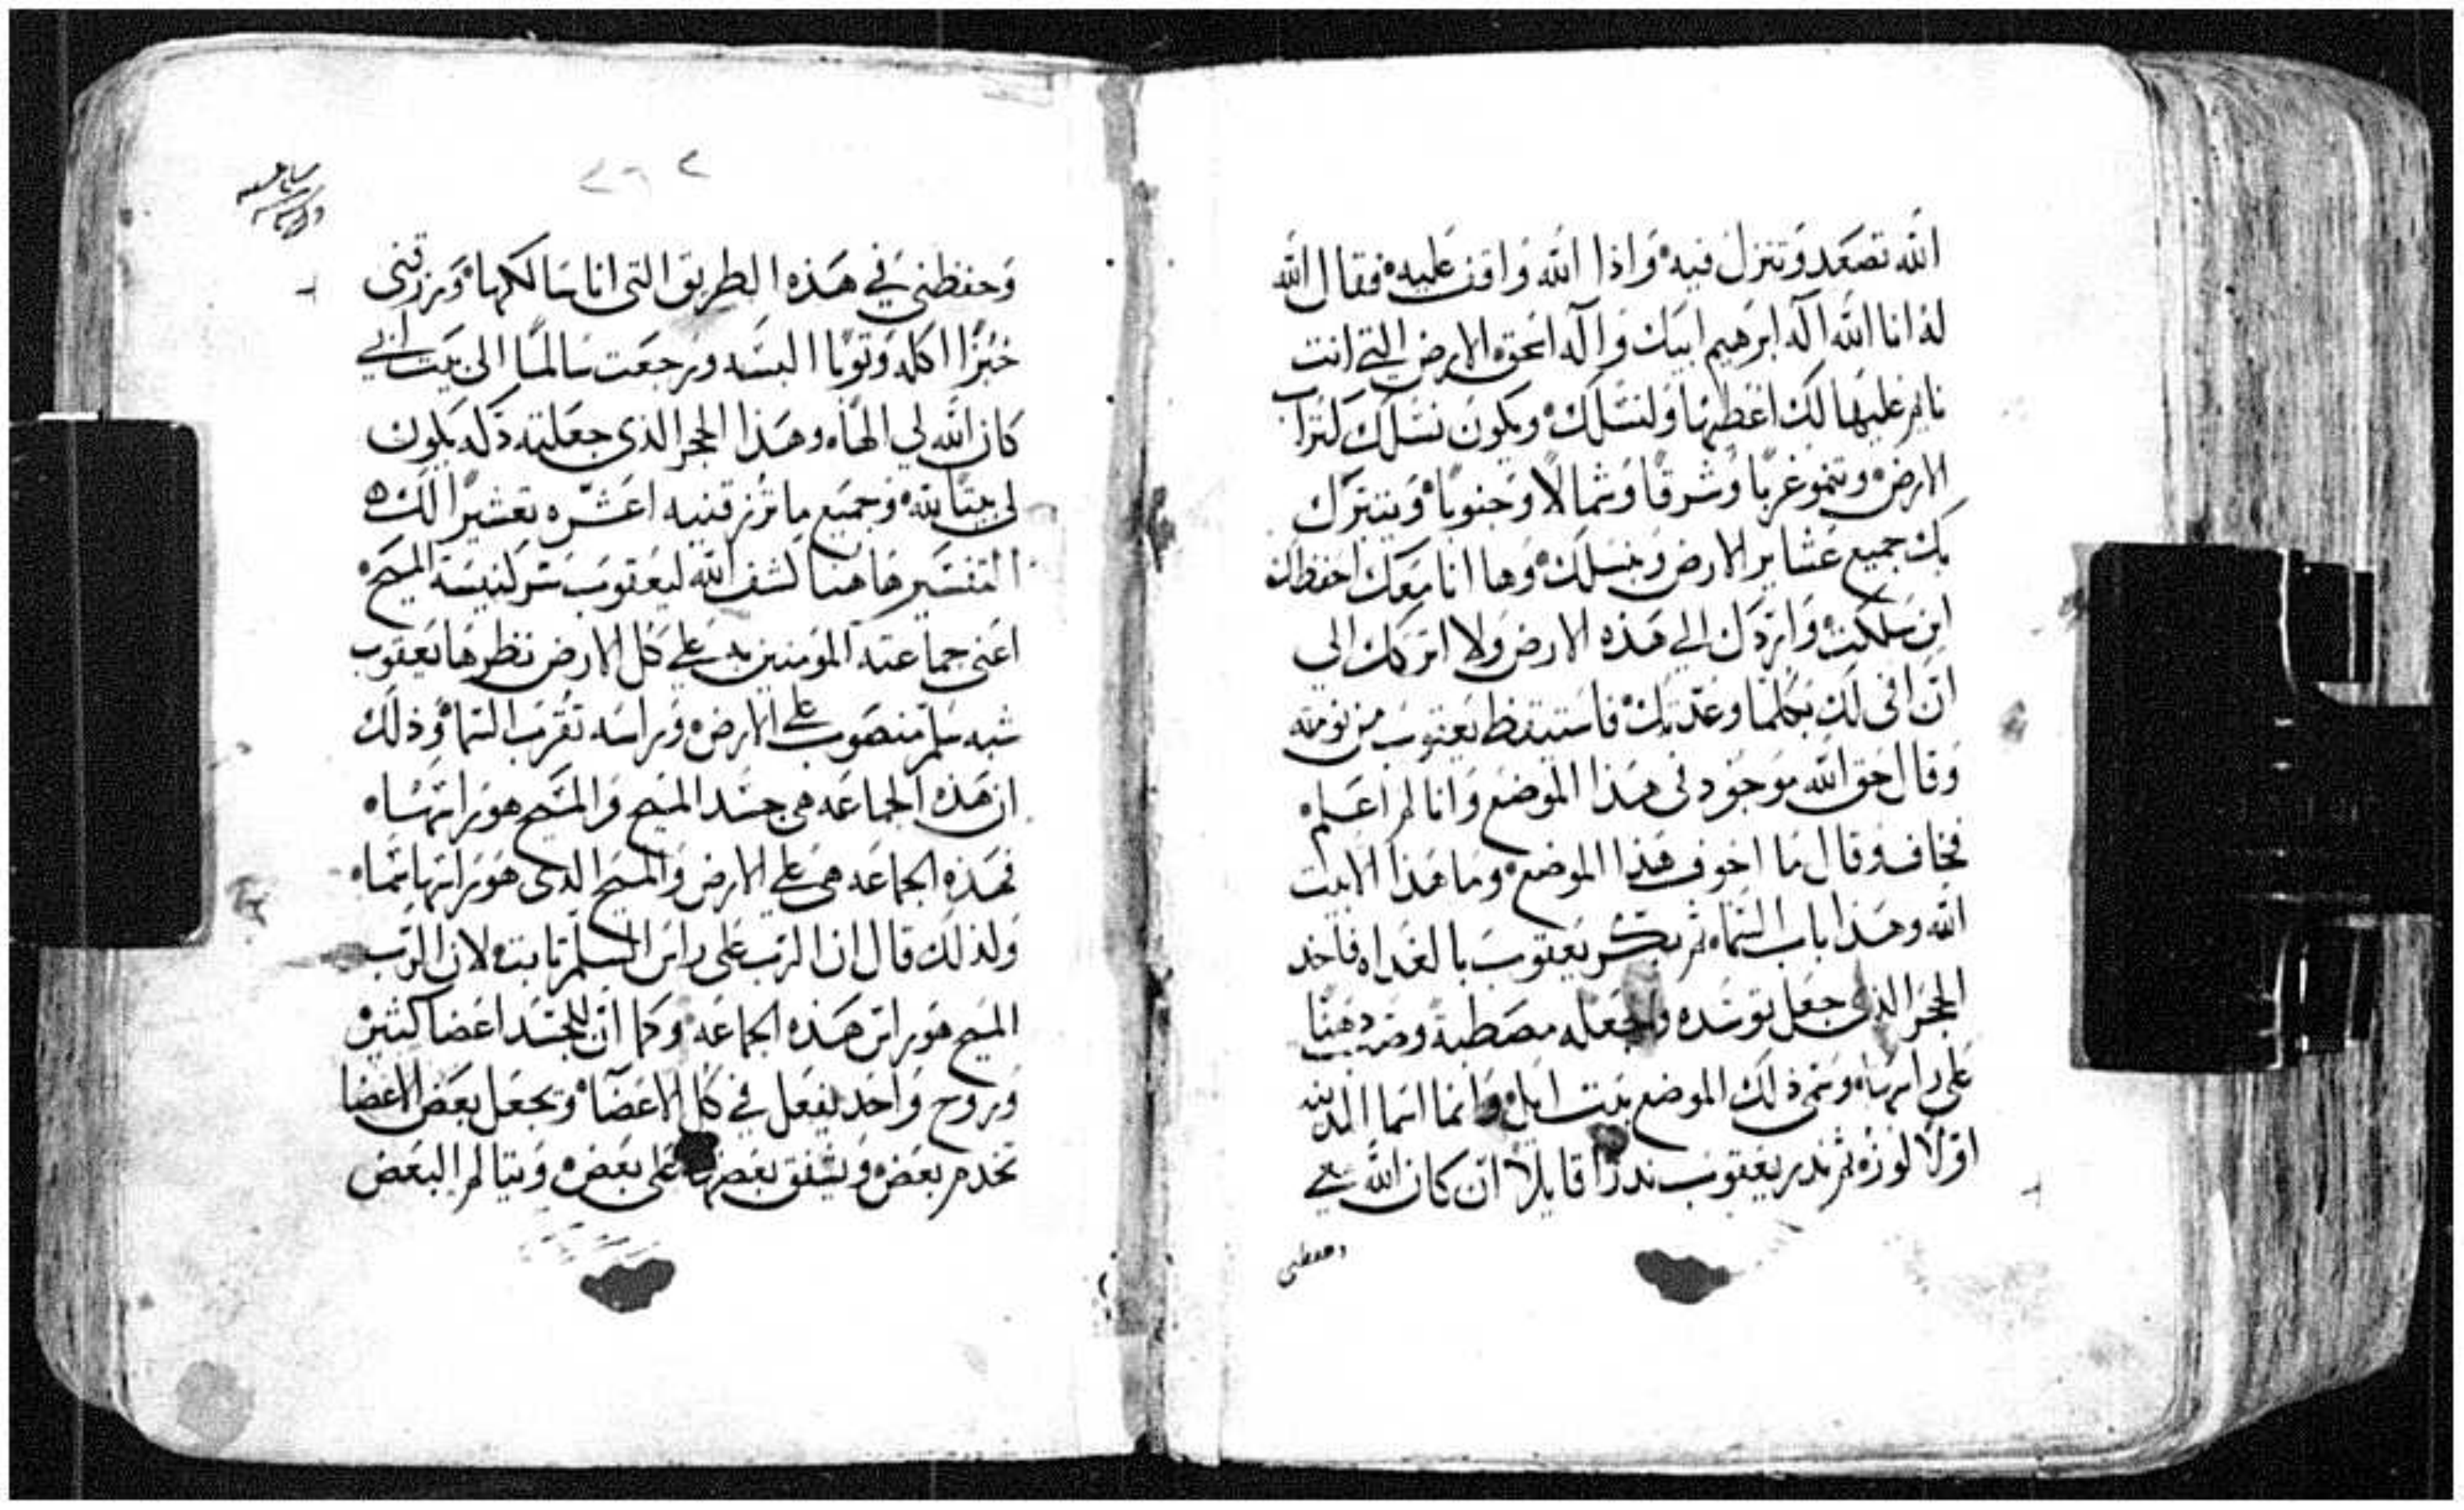 الله تصعد وتنزل فيه ۰ واذا الله واقف عليه ۰ فقال الله
له انا الله اله ابرهيم ابيك واله اسحق ۰ الارض التي انت
نايم عليها لك اعطيها ولنسلك ۰ ويكون نسلك كتراب
الارض ۰ وتنمو غربًا وشرقًا وشمالًا وجنوبًا ۰ ويتبرك
بك جميع عشاير الارض وبنسلك ۰ وها انا معك احفظك
اين سلكت ۰ واردك الي هذه الارض ولا اتركك الي
ان افى لك بكلما وعدتك ۰ فاستيقظ يعقوب من نومته
وقال حق الله موجود فى هذا الموضع وانا لم اعلم ۰
فخاف وقال ما اخوف هذا الموضع ۰ وما هذا الا بيت
الله وهذا باب السماء ثم بكر يعقوب بالغداه فاخد
الحجر الذى جعل توسده وجعله مصطبة وصب دهنًا
على راسها ۰ وسمى ذلك الموضع بيت ايل ۰ وانما اسم المدينه
اولًا لوزه ثم ندر يعقوب ندرًا قايلًا ان كان الله معي
وحفظنى
وحفظني في هذه الطريق التى انا سالكها ۰ ورزقنى
خبزًا اكله وثوبًا البسه ورجعت سالمًا الى بيت ابي
كان الله لي الهًا ۰ وهذا الحجر الدى جعلته دكه يكون
لى بيتًا لله ۰ وجميع ما ترزقنيه اعشّره تعشيرًا لك ۰
التفسير هاهنا كشف الله ليعقوب سر كنيسة المسيح ۰
اعنى جماعته المومنين به على كل الارض نظرها يعقوب
شبه سلم منصوب على الارض ۰ وراسه تقرب السما ۰ وذلك
ان هذه الجماعه هى جسد المسيح والمسيح هو راسها ۰
فهذه الجماعه هى على الارض والمسيح الدى هو راسها سما ۰
ولذلك قال ان الرب على راس السلم ثابت ۰ لان الرب
المسيح هو راس هذه الجماعه ۰ وكما ان للجسد اعضا كثيره
وروح واحد يفعل في كل الاعضا ۰ ويجعل بعض الاعضا
تخدم بعض ۰ ويشفق بعضها على بعض ۰ ويتالم البعض